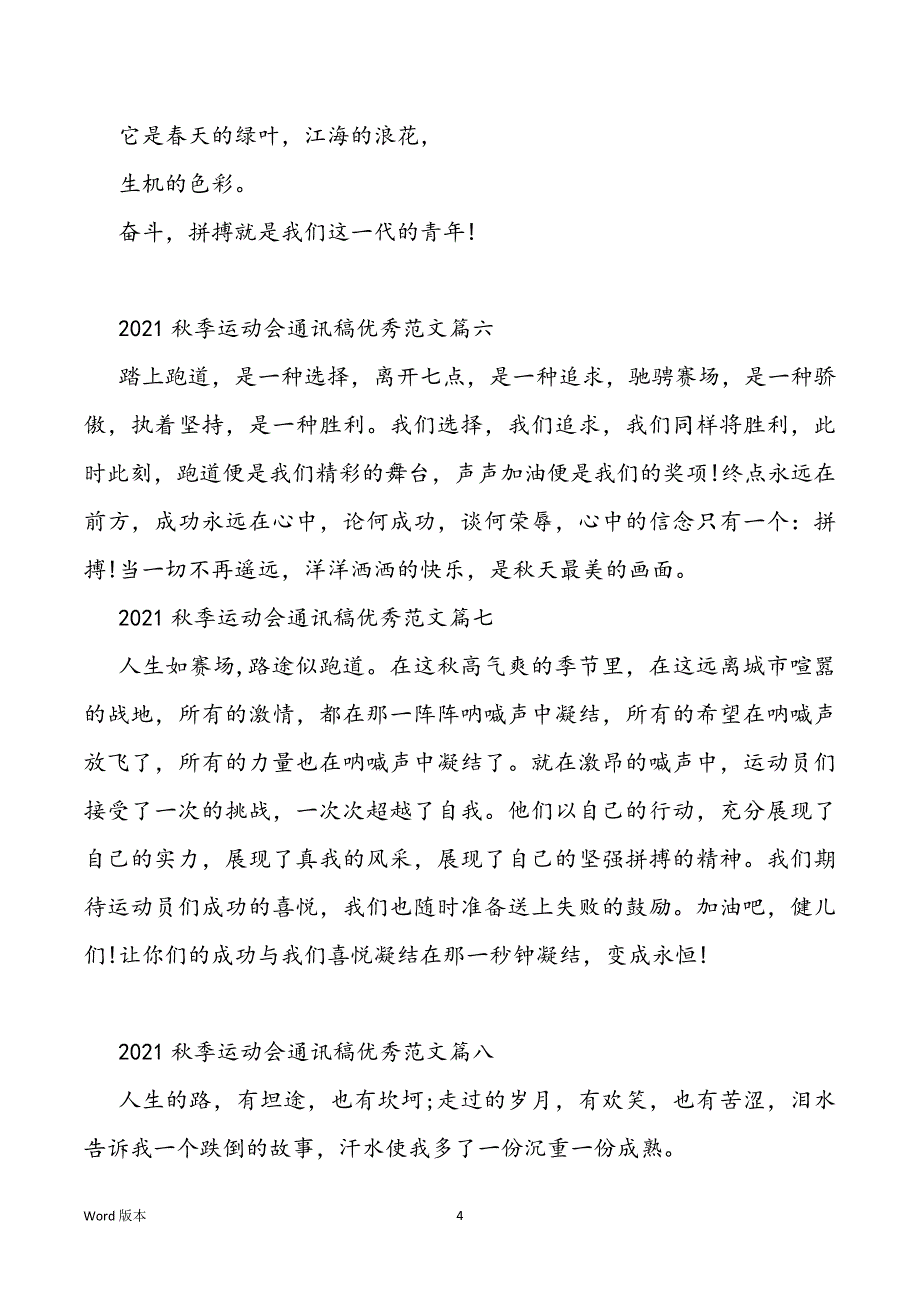 它是春天的绿叶，江海的浪花，
生机的色彩。
奋斗，拼搏就是我们这一代的青年!
2021 秋季运动会通讯稿优秀范文篇六
踏上跑道，是一种选择，离开七点，是一种追求，驰骋赛场，是一种骄
傲，执着坚持，是一种胜利。我们选择，我们追求，我们同样将胜利，此
时此刻，跑道便是我们精彩的舞台，声声加油便是我们的奖项!终点永远在
前方，成功永远在心中，论何成功，谈何荣辱，心中的信念只有一个：拼
搏!当一切不再遥远，洋洋洒洒的快乐，是秋天最美的画面。
2021 秋季运动会通讯稿优秀范文篇七
人生如赛场,路途似跑道。在这秋高气爽的季节里，在这远离城市喧嚣
的战地，所有的激情，都在那一阵阵呐喊声中凝结，所有的希望在呐喊声
放飞了，所有的力量也在呐喊声中凝结了。就在激昂的喊声中，运动员们
接受了一次的挑战，一次次超越了自我。他们以自己的行动，充分展现了
自己的实力，展现了真我的风采，展现了自己的坚强拼搏的精神。我们期
待运动员们成功的喜悦，我们也随时准备送上失败的鼓励。加油吧，健儿
们!让你们的成功与我们喜悦凝结在那一秒钟凝结，变成永恒!
2021 秋季运动会通讯稿优秀范文篇八
人生的路，有坦途，也有坎坷;走过的岁月，有欢笑，也有苦涩，泪水
告诉我一个跌倒的故事，汗水使我多了一份沉重一份成熟。
Word 版本 4